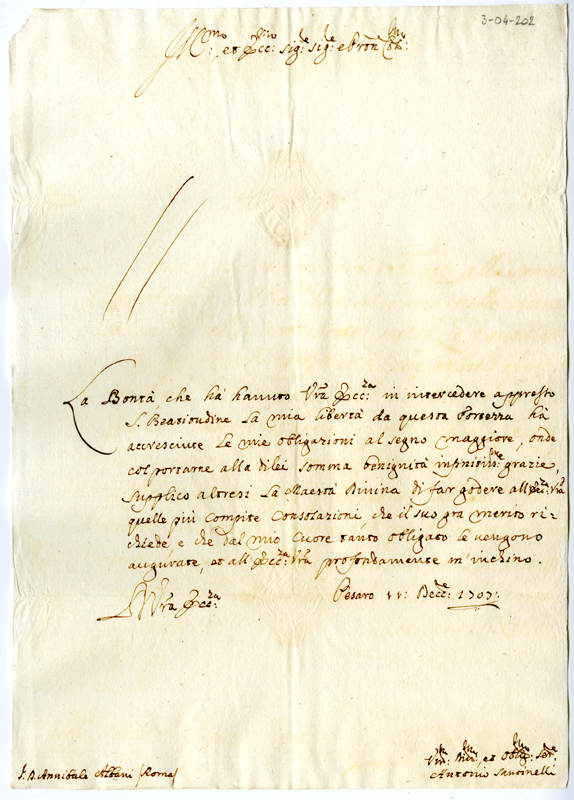 3-04-202
Ill.mo et Ecc.mo Sig.re Sig.re e Pron Col.mo
La Bontà che hà havuto V̄ra Ecc.za in intercedere appresso
S. Beatitudine la mia libertà da questa Fortezza hà
accresciute le mie obligazioni al segno maggiore, onde
col portarne alla di lei somma benignità infinitiss.me grazie,
supplico altresì la Maestà Divina di far godere all'Ecc.za V̄ra
quelle più compite Consolazioni, che il suo grā merito ri-
chiede, e che dal mio Cuore tanto obligato le vengono
augurate, et all'Ecc.za V̄ra profondamente m'inchino.
D V̄ra Ecc.za
Pesaro 11: Decē: 1707:
D. Annibale Albani (Roma)
Div.mo et Obblig.mo Ser.e
Antonio Santinelli